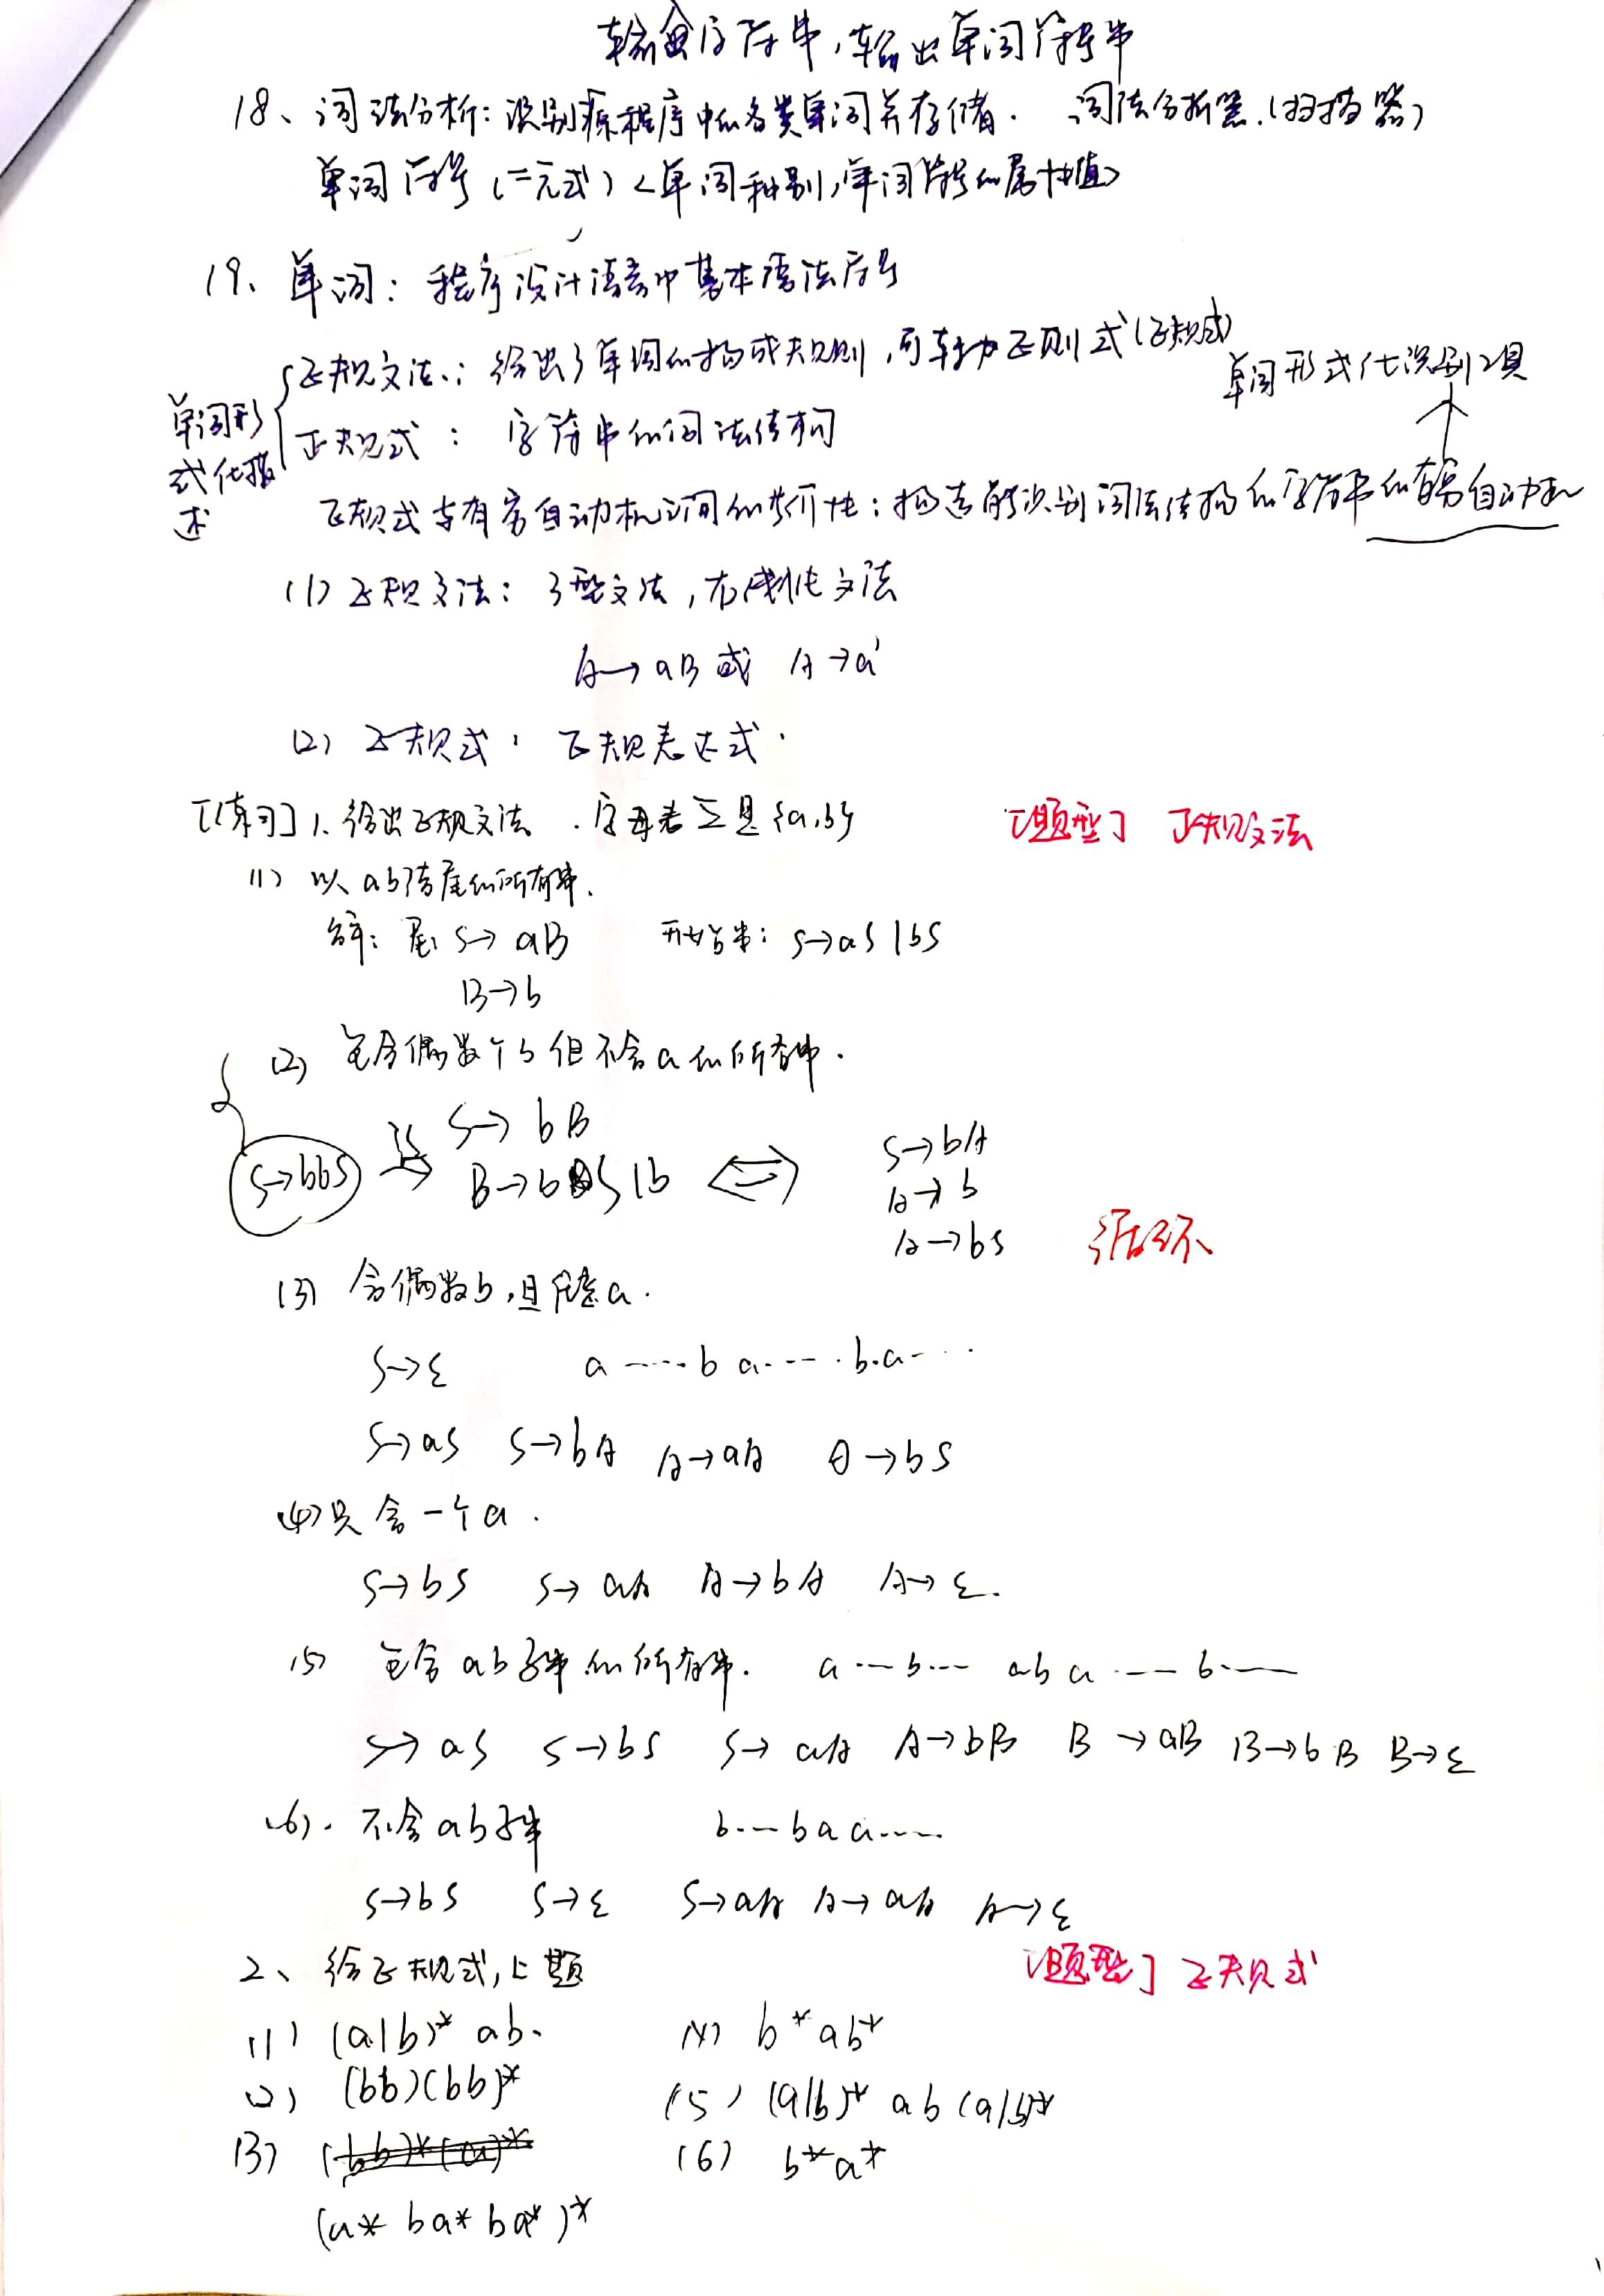 输入字符串,输出单词符号串
18、词法分析:识别源程序中的各类单词并存储. 词法分析器.(扫描器)
单词符号(二元式)<单词种别,单词符号的属性值>
19、单词:程序设计语言中基本语法符号
单词形式化描述
正规文法:给出了单词的构成规则,可转为正则式(正规式)
单词形式化识别工具
正规式: 字符串的词法结构
正规式与有穷自动机之间的等价性:构造能识别词法结构的字符串的有穷自动机
(1)正规文法:3型文法,右线性文法
A→aB 或 A→a
(2)正规式:正规表达式.
[练习]1、给出正规文法.字母表Σ是{a,b}
[题型] 正规文法
(1) 以ab结尾的所有串.
解:尾:S→aB 开始串:S→aS|bS
B→b
(2) 包含偶数个b但不含a的所有串.
S→bbS ⇒ S→bB
B→bS|b ⇔ S→bA
A→b
A→bS 循环
(3) 含偶数b,且任意a.
S→ε a……b a……b.a……
S→aS S→bA A→aA A→bS
(4)只含一个a.
S→bS S→aA A→bA A→ε.
(5) 包含ab子串的所有串. a…b… ab a…b…
S→aS S→bS S→aA A→bB B→aB B→bB B→ε
(6). 不含ab子串 b…b a a……
S→bS S→ε S→aA A→aA A→ε
2、给正规式,上题
[题型] 正规式
(1) (a|b)* ab. (4) b*ab*
(2) (bb)(bb)* (5) (a|b)* ab (a|b)*
(3) (bb)*(a)* (6) b*a*
(a* ba* ba*)*